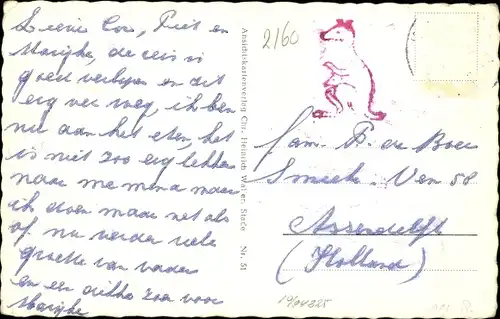 Lieve Cor, Piet en
Marijke, de reis is
goed verlopen en dit
erg ver weg, ik ben
nu aan het eten, het
is niet zoo erg lekker
naar me mma maar
ik doen maar net als
of nu verder vele
groetten van vader
en een dikke zoen voor
Marijke
Ansichtskartenverlag Chr. Heinrich Wall er, Stade Nr. 51
2160
Fam. P. de Boer
Smack. Ven 58
Assendelft
(Holland)